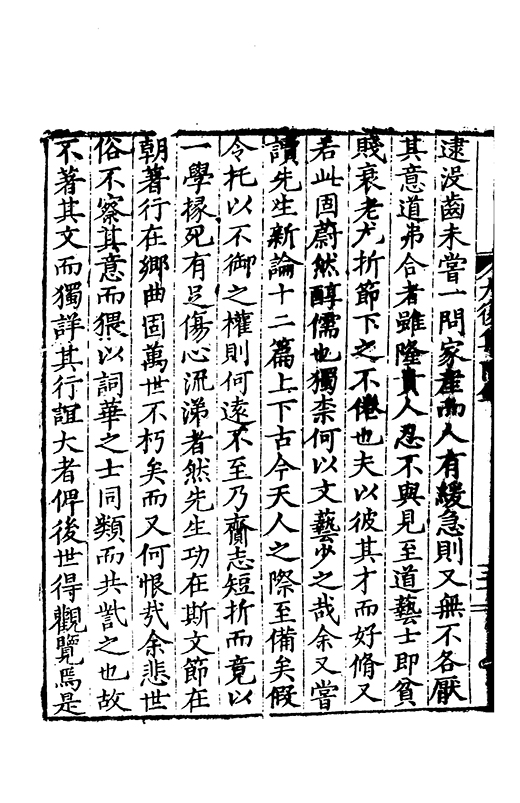 逮沒齒未嘗一問家產而人有緩急則又無不各厭
其意道弗合者雖隆貴人忍不與見至道藝士即貧
賤衰老尤折節下之不倦也夫以彼其才而好脩又
若此固蔚然醇儒也獨柰何以文藝少之哉余又嘗
讀先生新論十二篇上下古今天人之際至備矣假
令托以不御之權則何遠不至乃齎志短折而竟以
一學掾死有足傷心流涕者然先生功在斯文節在
朝著行在鄉曲固萬世不朽矣而又何恨哉余悲世
俗不察其意而猥以詞華之士同類而共訾之也故
不著其文而獨詳其行誼大者俾後世得觀覽焉是